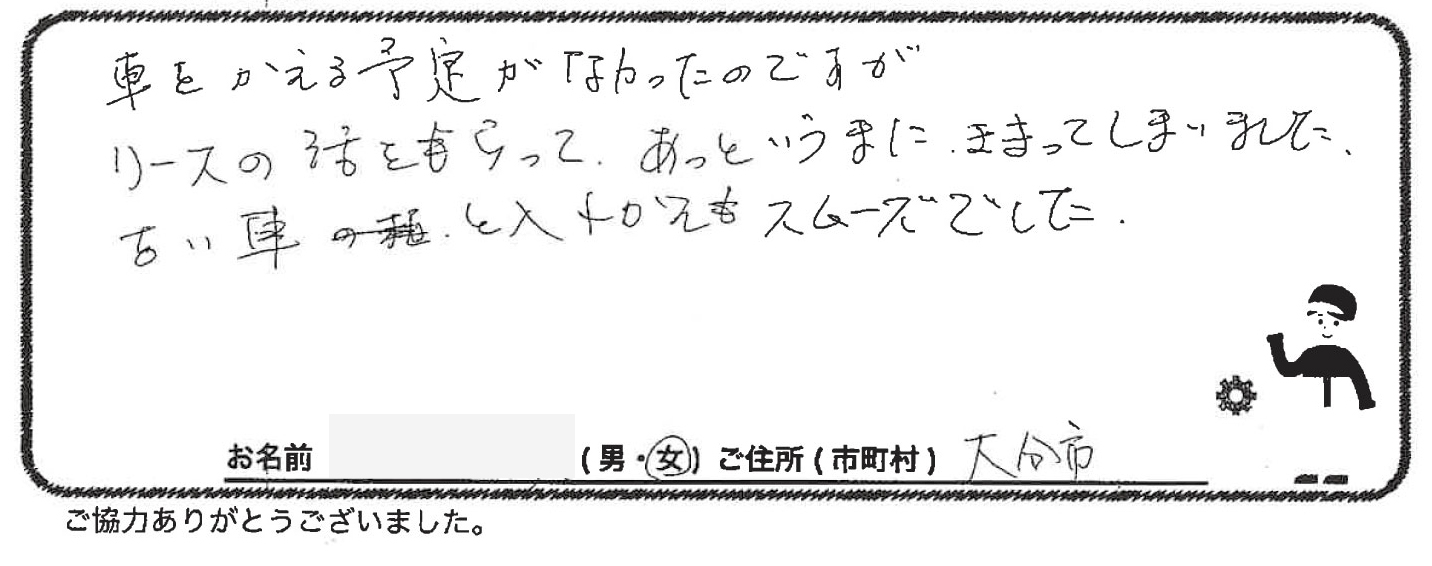 車をかえる予定がなかったのですが
リースの話をもらって、あっというまに、きまってしまいました、
古い車と入れかえもスムーズでした.
お名前 (男・女) ご住所(市町村) 大分市
ご協力ありがとうございました。